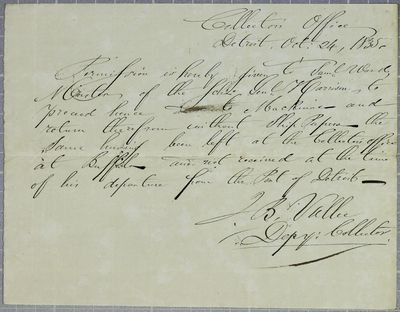 Collectors Office
Detroit. Oct. 24, 1835
Permission is hereby given to Saml Wood,
Master of the Schr. Genl Harrison, to
proceed hence to Mackinac and
return therefrom without Ship Papers the
same having been left at the Collectors office
at Buffalo and not received at the time
of his departure from the Port of Detroit
J B. Vallee
Depy: Collector